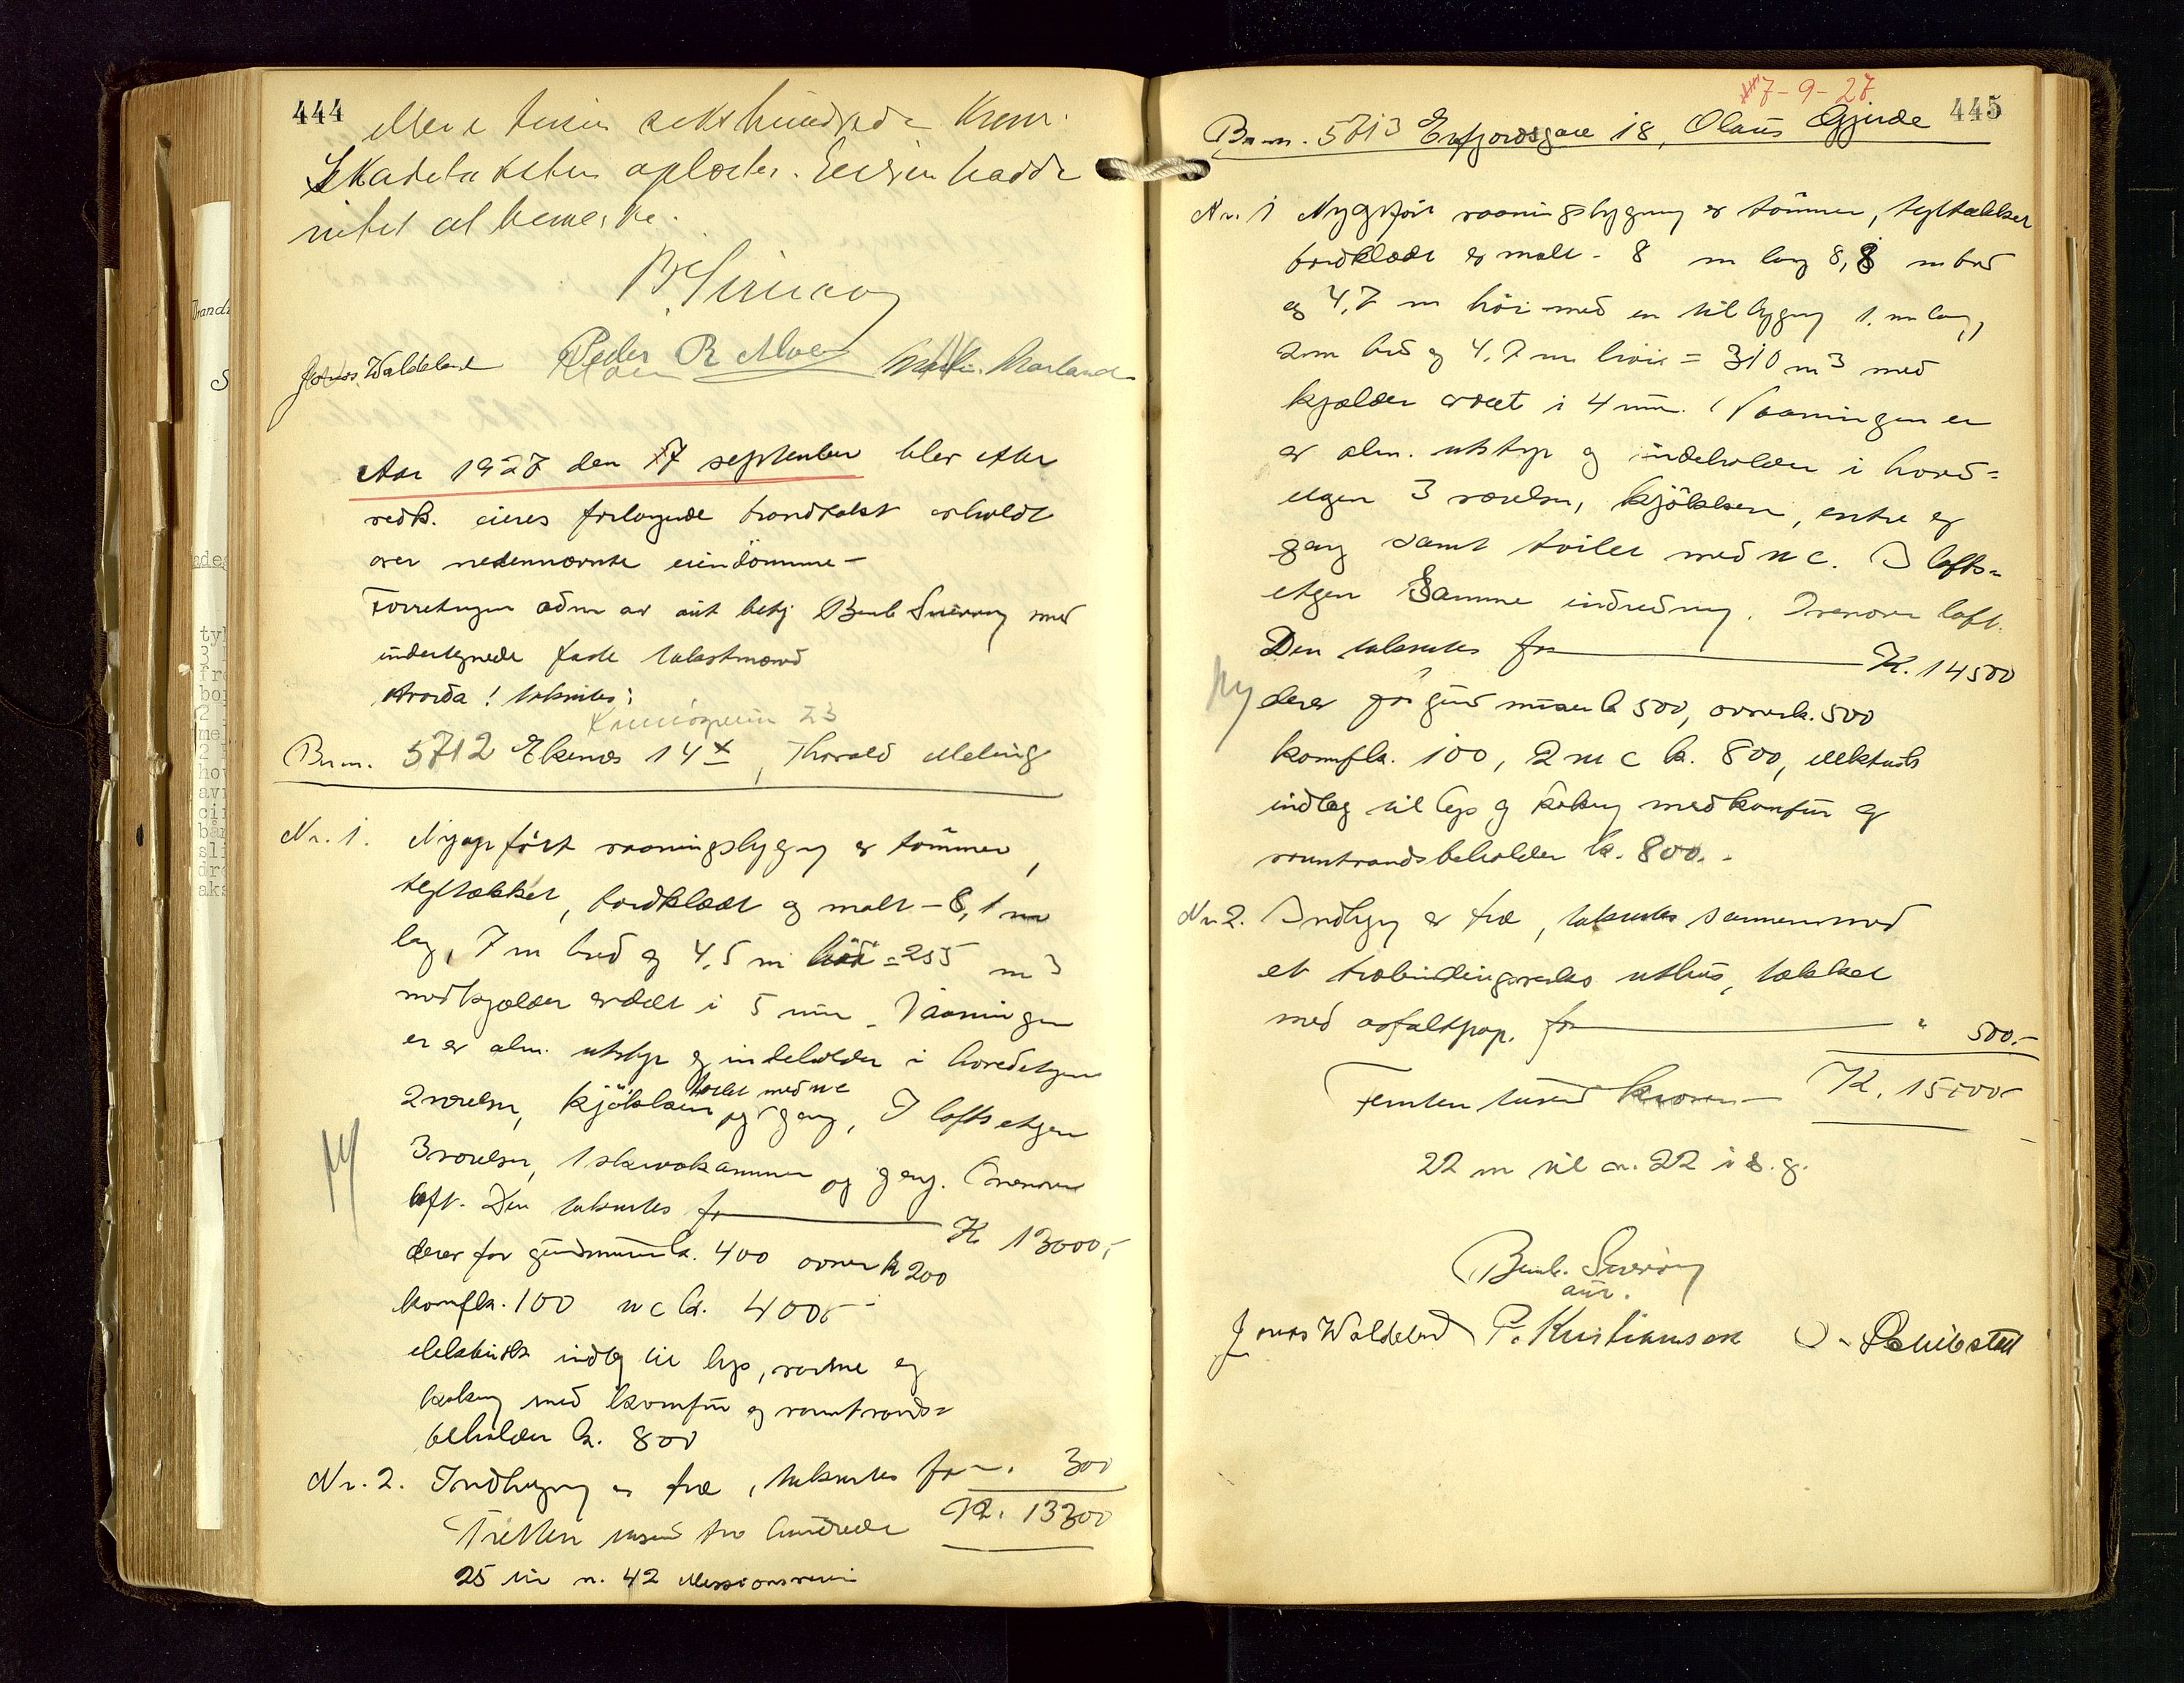 444
elleve tusen sekshundrede Kroner.
Skadetaksten oplæstes. Eieren hadde
intet at bemerke.
Jonas Waldeland Peder R Moen
Aar 1927 den 17 september blev efter
vedk. eieres forlangende brandtakst avholdt
over nedennævnte eiendomme –
Forretningen adm av aut betj Bernh Sivering med
undertegnede faste takstmænd
Hvorda! takseres:
23
Br.nr. 5712 Ekenes 14 x, Thorvald Meling
Nr. 1. Nyopført vaaningsbygning av tømmer,
tegltækket, bordklædt og malt – 8,1 m
lang, 7 m bred og 4,5 m høi = 255 m3
med kjælder avdelt i 5 rum. Vaaningen
er av alm. utstyr og indeholder i hovedetagen
2 værelser, kjøkken toilet med wc og gang, I loftsetagen
3 værelser, 1 skraakammer og gang. Ovenover
loft. Den takseres for K 13000,-
derav for grundmuren k. 400 ovner k 200
komf k. 100 wc k. 400,-
elektrisk indlæg til lys, varme og
kokning med komfur og varmtvands-
beholder k. 800
Nr. 2. Indhegning av træ, takseres for -. 300
K. 13300
Tretten tusend tre hundrede
25 til nr. 42 Missionsveien
17-9-27
445
Br.nr. 5713 Erfjordsgate 18, Olaus Gjerde
Nr. 1 Nyopført vaaningsbygning av tømmer, tegltækket
bordklædt og malt – 8 m lang 8,8 m bred
og 4,7 m høi med en tilbygning 1 m lang,
2 m bred og 4,7 m høi = 310 m3 med
kjælder avdelt i 4 rum. Vaaningen er
av alm. utstyr og indeholder i hoved-
etagen 3 værelser, kjøkken, entre og
gang samt toilet med wc. I lofts-
etagen samme indredning. Ovenover loft.
Den takseres for K. 14500
ny derav for grundmuren k 500, ovner k. 500
komf k. 100, 2 wc k. 800, elektrisk
indlæg til lys og kokning med komfur og
varmtvandsbeholder k. 800.-
Nr. 2. Indhegn av træ, takseres sammen med
et træbindingsverks uthus, tækket
med asfaltpap. for " 500.-
Femten tusend kroner – K. 15000-
22 m til nr. 22 i s. g.
Bernh. Sivering
aut.
Jonas Waldeland P. Kristiansen